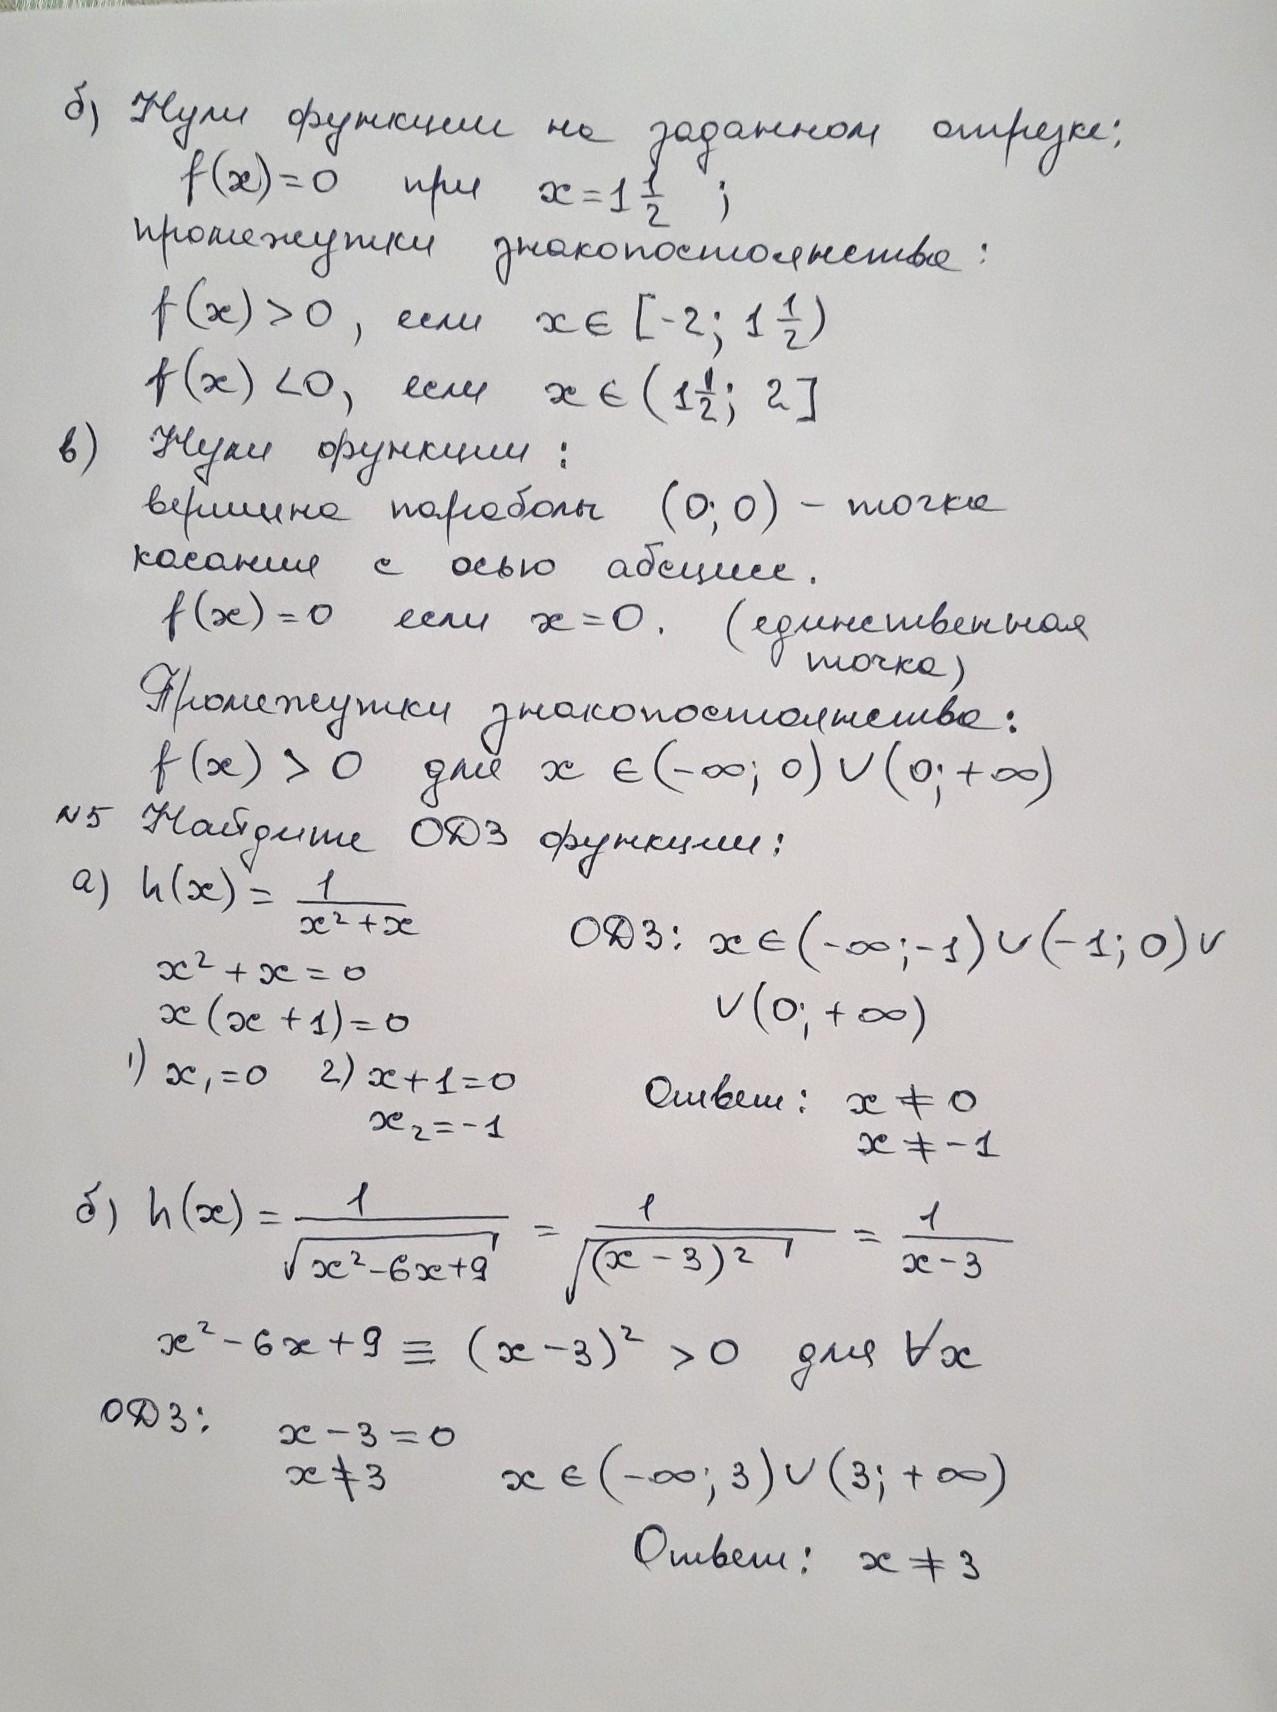 б) Нули функции на заданном отрезке:
f(x)=0 при x=1 1/2 ;
промежутки знакопостоянства:
f(x)>0, если x∈[-2; 1 1/2)
f(x)<0, если x∈(1 1/2; 2]
в) Нули функции:
вершина параболы (0;0) – точка
касания с осью абсцисс.
f(x)=0 если x=0. (единственная
точка)
Промежутки знакопостоянства:
f(x)>0 для x∈(-∞; 0)∨(0;+∞)
№5 Найдите ОДЗ функции:
а) h(x)= 1/(x²+x)
x²+x=0
x(x+1)=0
1) x₁=0 2) x+1=0
x₂=-1
ОДЗ: x∈(-∞;-1)∨(-1;0)∨
∨(0;+∞)
Ответ: x≠0
x≠-1
б) h(x)= 1/√(x²-6x+9) = 1/√((x-3)²) = 1/(x-3)
x²-6x+9≡(x-3)²>0 для ∀x
ОДЗ: x-3=0
x≠3 x∈(-∞;3)∨(3;+∞)
Ответ: x≠3